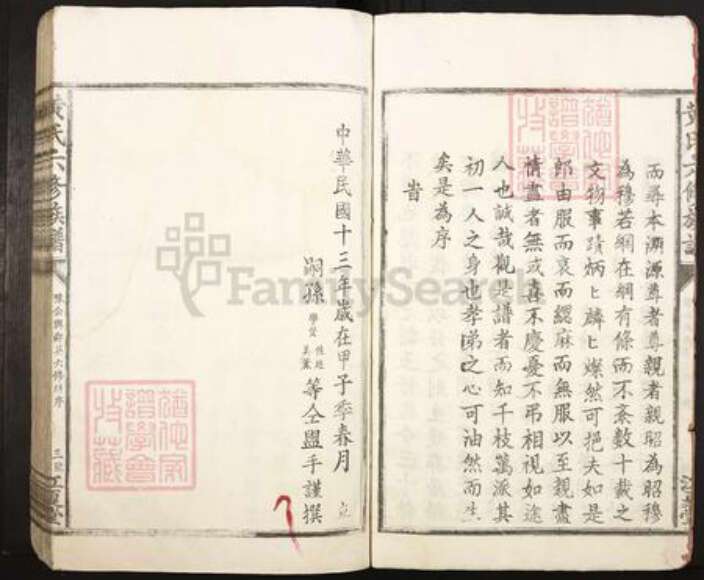 而尋本溯源尊者尊親者親昭為昭穆
為穆若綱在綱有條而不紊數十載之
文物事蹟炳匕麟匕燦然可挹夫如是
郎由服而衰而緦麻而無服以至親盡
情盡者無或喜不慶憂不弔相視如途
人也誠哉觀是譜者而知千枝萬派其
初一人之身也孝弟之心可油然而生
矣是為序
旹
中華民國十三年歲在甲子季春月 立
嗣孫 等仝盟手謹撰
黃氏六修族譜
FamilySearch